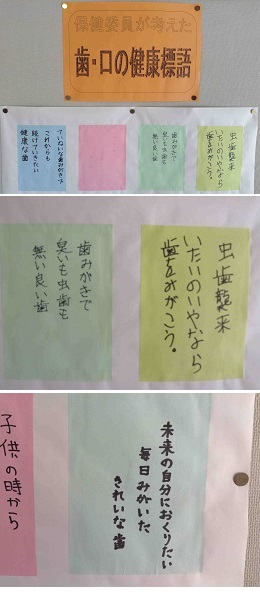 保健委員が考えた
歯・口の健康標語
虫歯襲来
いたいのいやなら
歯をみがこう。
歯みがきで
臭いも虫歯も
無い良い歯
ていねいな歯みがきで
これからも
続けていきたい
健康な歯
虫歯襲来
いたいのいやなら
歯をみがこう。
歯みがきで
臭いも虫歯も
無い良い歯
未来の自分におくりたい
毎日みがいた
きれいな歯
子供の時から